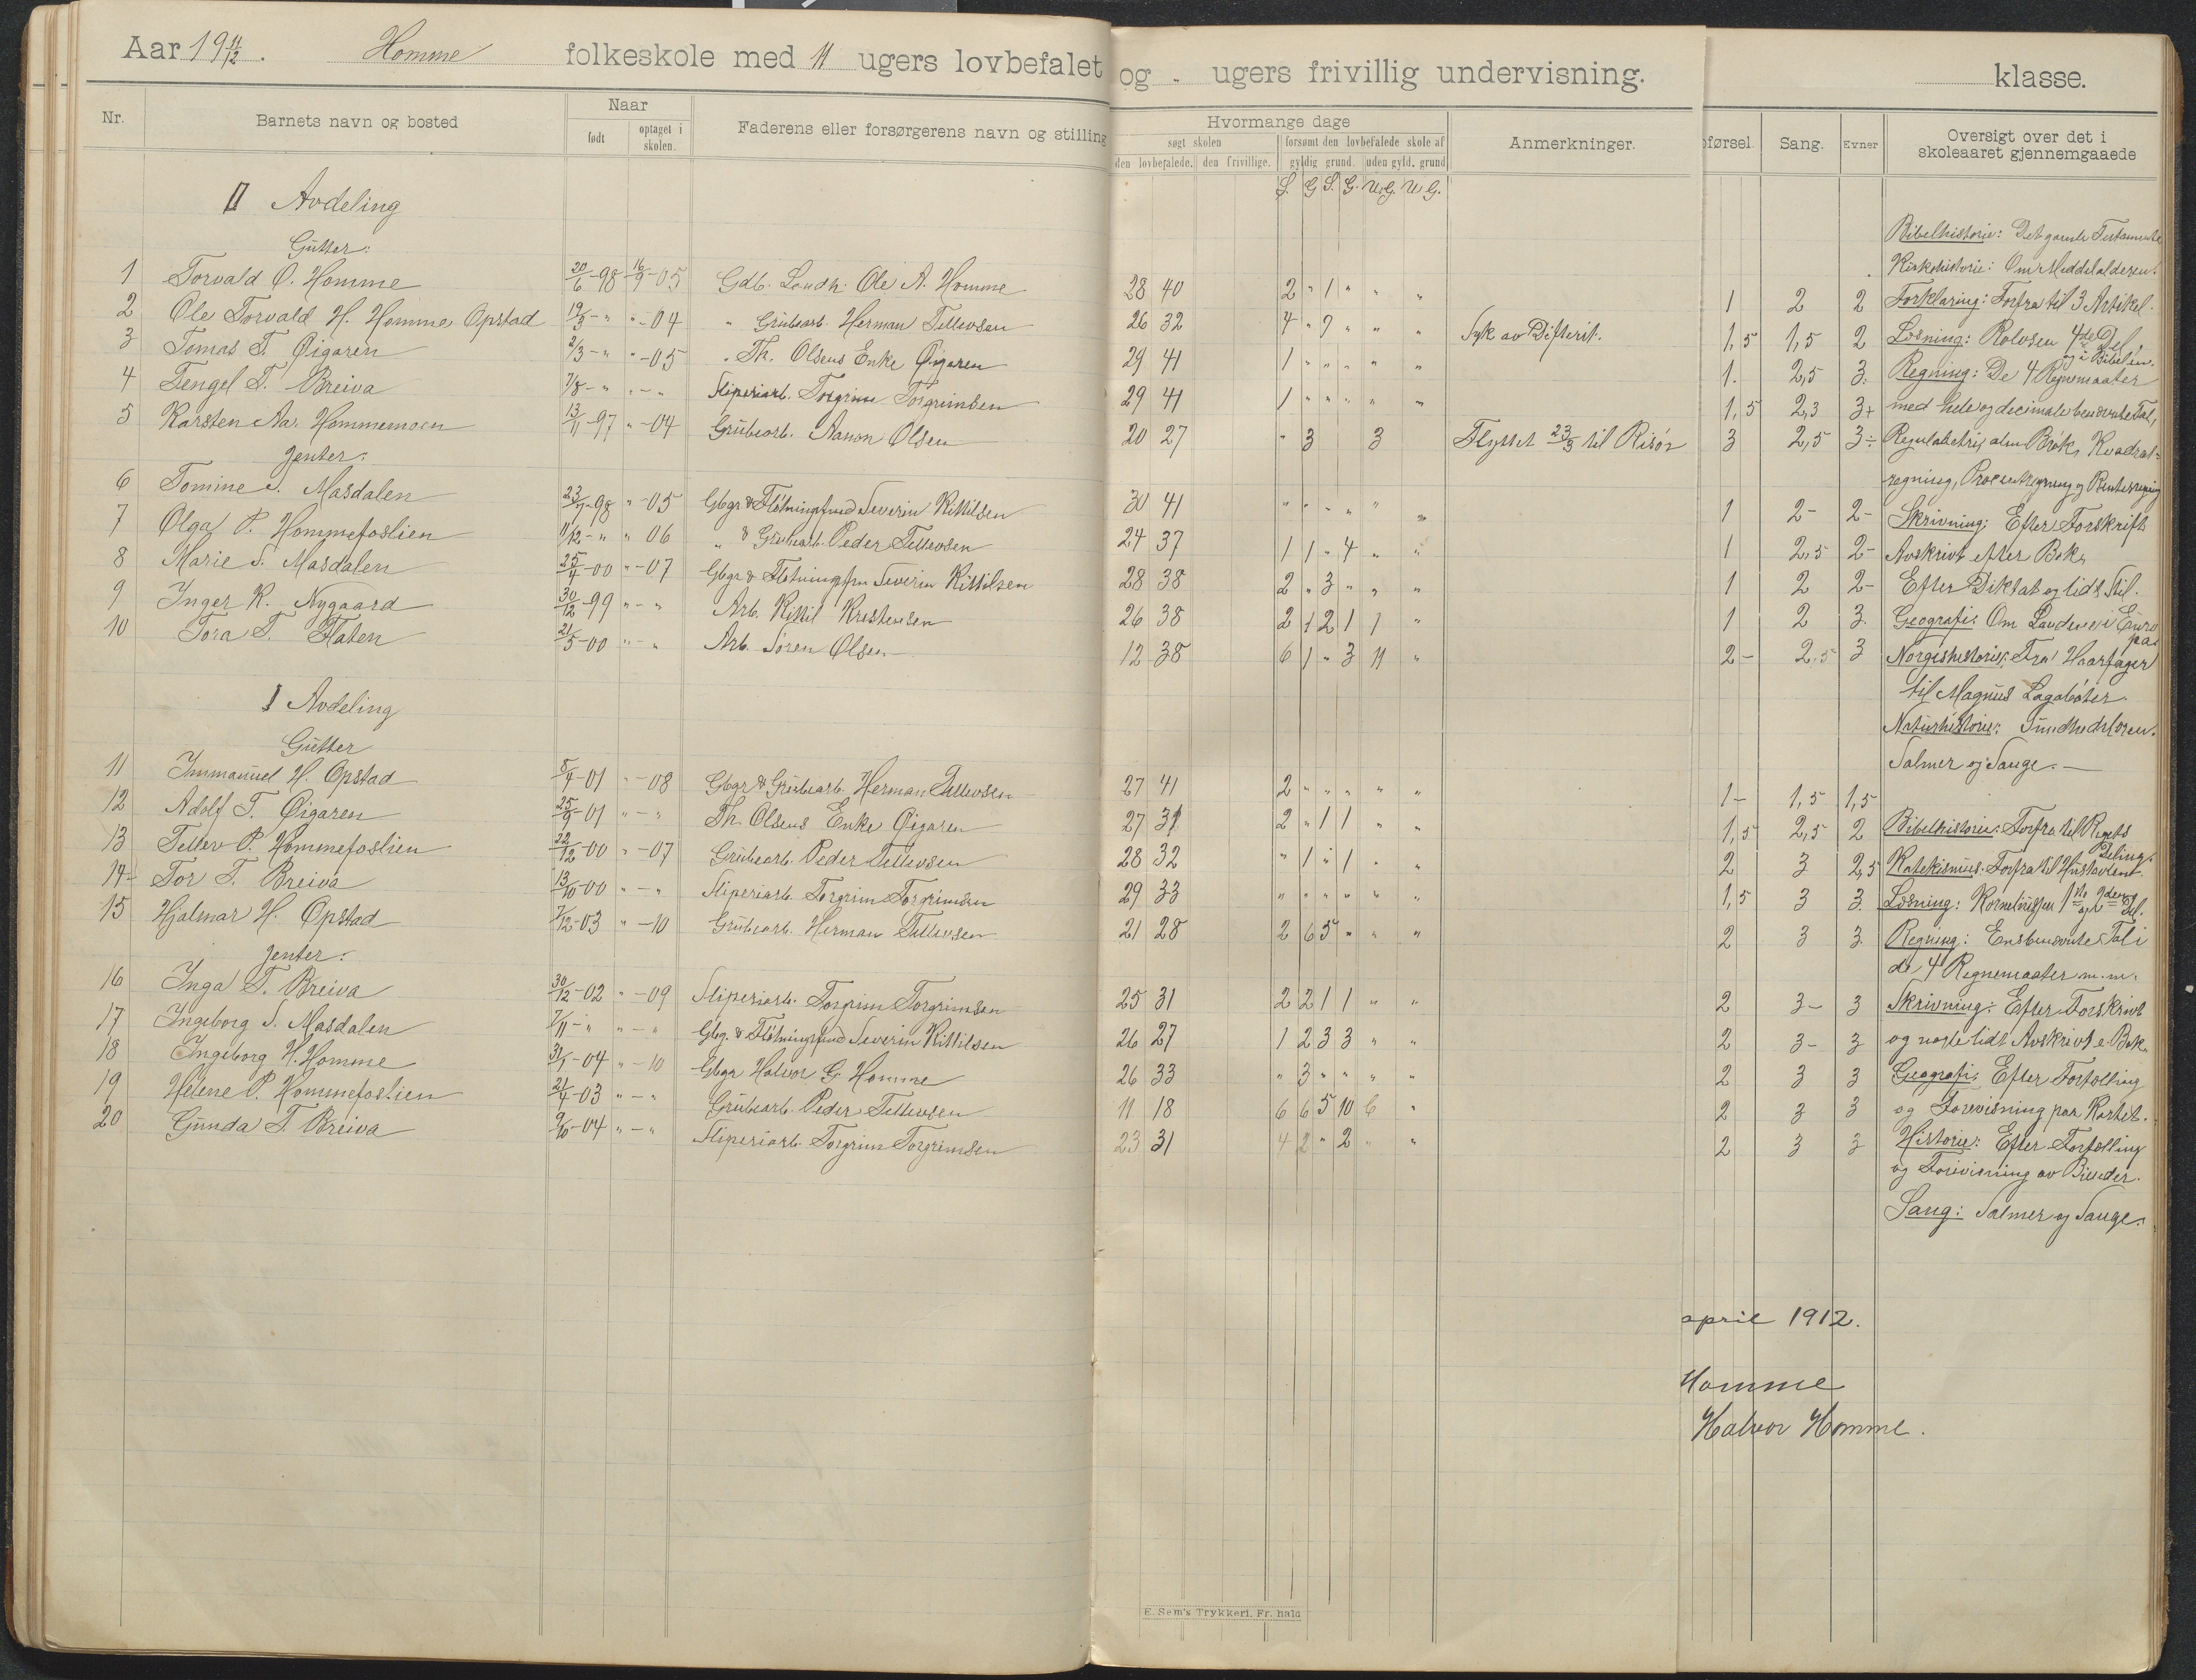 Aar 19 11/12. Homme folkeskole med 11 ugers lovbefalet og - ugers frivillig undervisning. klasse.
Nr. Barnets navn og bosted Naar født optaget i skolen. Faderens eller forsørgerens navn og stilling
Hvormange dage
søgt skolen forsømt den lovbefalede skole af
den lovbefalede. den frivillige. gyldig grund. uden gyld. grund
Anmerkninger.
førsel. Sang. Evner Oversigt over det i skoleaaret gjennemgaaede
S. G S. G. U. G. U. G.
II Avdeling
Gutter:
1 Torvald O. Homme 20/6-98 16/9-05 Gdb. Landh. Ole A. Homme 28 40 2 " 1 " " " 1 2 2
2 Ole Torvald H. Homme Opstad 19/3-" "-04 " Grubearb. Herman Tellevsen 26 32 4 " 9 " " " Syk av Difterit. 1,5 1,5 2
3 Tomas T. Øigaren 2/3-" "-05 " Th. Olsens Enke Øigaren 29 41 1 " " " " " 1. 2,5 3.
4 Tengel T. Breiva 7/8-" "-" Sliperiarb. Torgrim Torgrimsen 29 41 1 " " " " " 1,5 2,3 3+
5 Karsten Aa. Hommemoen 13/11-97 "-04 Grubearb. Aanon Olsen 20 27 " 3 3 Flyttet 23/3 til Risør 3 2,5 3÷
Jenter:
6 Tomine S. Masdalen 23/7-98 "-05 Gbgr & Fløtningsfmd Severin Kittilsen 30 41 " " " " " " 1 2- 2-
7 Olga P. Hommefoslien 11/12-" " 06 " & Grubearb. Peder Tellevsen 24 37 1 1 " 4 " " 1 2,5 2-
8 Marie S. Masdalen 25/4-00 "-07 Gbgr & Fløtningsfm Severin Kittilsen 28 38 2 " 3 " " " 1 2 2-
9 Inger K. Nygaard 30/12-99 "-" Arb. Kittil Kristensen 26 38 2 1 2 1 1 " 1 2 3.
10 Tora T. Flaten 21/5-00 "-" Arb. Søren Olsen 12 38 6 1 " 3 11 " 2- 2,5 3
I Avdeling
Gutter
11 Immanuel H. Opstad 8/4-01 "-08 Gbgr & Grubearb. Herman Tellevsen 27 41 2 " " " " " 1- 1,5 1,5
12 Adolf T. Øigaren 25/9-01 "-" Th. Olsens Enke Øigaren 27 31 2 " 1 1 " " 1,5 2,5 2
13 Tellev P. Hommefoslien 22/12-00 "-07 Grubearb. Peder Tellevsen 28 32 " 1 " 1 " " 2 3 2,5
14 Tor T. Breiva 13/10-00 "-" Sliperiarb. Torgrim Torgrimsen 29 33 " " " " " " 1,5 3 3.
15 Hjalmar H. Opstad 7/12-03 "-10 Grubearb. Herman Tellevsen 21 28 2 6 5 " " " 2 3 3.
Jenter:
16 Inga T. Breiva 30/12-02 "-09 Sliperiarb. Torgrim Torgrimsen 25 31 2 2 1 1 " " 2 3- 3
17 Ingeborg S. Masdalen 7/11-" "-" Gbg. & Fløtningsfmd Severin Kittilsen 26 27 1 2 3 3 " " 2 3- 3
18 Ingeborg H. Homme 31/1-04 "-10 Gbgr Halvor G. Homme 26 33 " 3 " " " " 2 3 3
19 Helene P. Hommefoslien 24/4-03 "-" Grubearb. Peder Tellevsen 11 18 6 6 5 10 6 " 2 3 3
20 Gunda T. Breiva 9/10-04 "-" Sliperiarb. Torgrim Torgrimsen 23 31 4 2 " 2 " " 2 3 3
Bibelhistorie: Det gamle Testamente
Kirkehistorie: Om Middelalderen.
Forklaring: Forfra til 3 Artikel.
Læsning: Rolvsen 4de Del,
og i Bibelen.
Regning: De 4 Regnemaater
med hele og decimale benævnte Tal,
Reguladetri, alm Brøk, Kvadrat=
regning, Procentregning og Rentesregning
Skrivning: Efter Forskrift
Avskrivt etter Bok,
Efter Diktat og lidt Stil.
Geografi: Om Landene i Euro
pa.
Norgeshistorie: Fra Haarfager
til Magnus Lagabøter.
Naturhistorie: Sundhedslæren.
Salmer og Sange. —
Bibelhistorie: Forfra til Rigets
Deling.
Katekismus: Forfra til Hustavlen.
Læsning: Kornelinssen 1ste og 2den Del.
Regning: Ensbenævnte Tal i
de 4 Regnemaater m.m.
Skrivning: Efter Forskrivt
og noste lidt Avskrivt e. Bok.
Geografi: Efter Fortælling
og Forevisning paa Kartet.
Historie: Efter Fortælling
og Forivisning av Bieder.
Sang: Salmer og Sange.
april 1912.
Homme
Halvor Homme.
E. Sem's Trykkeri. Fr. hald